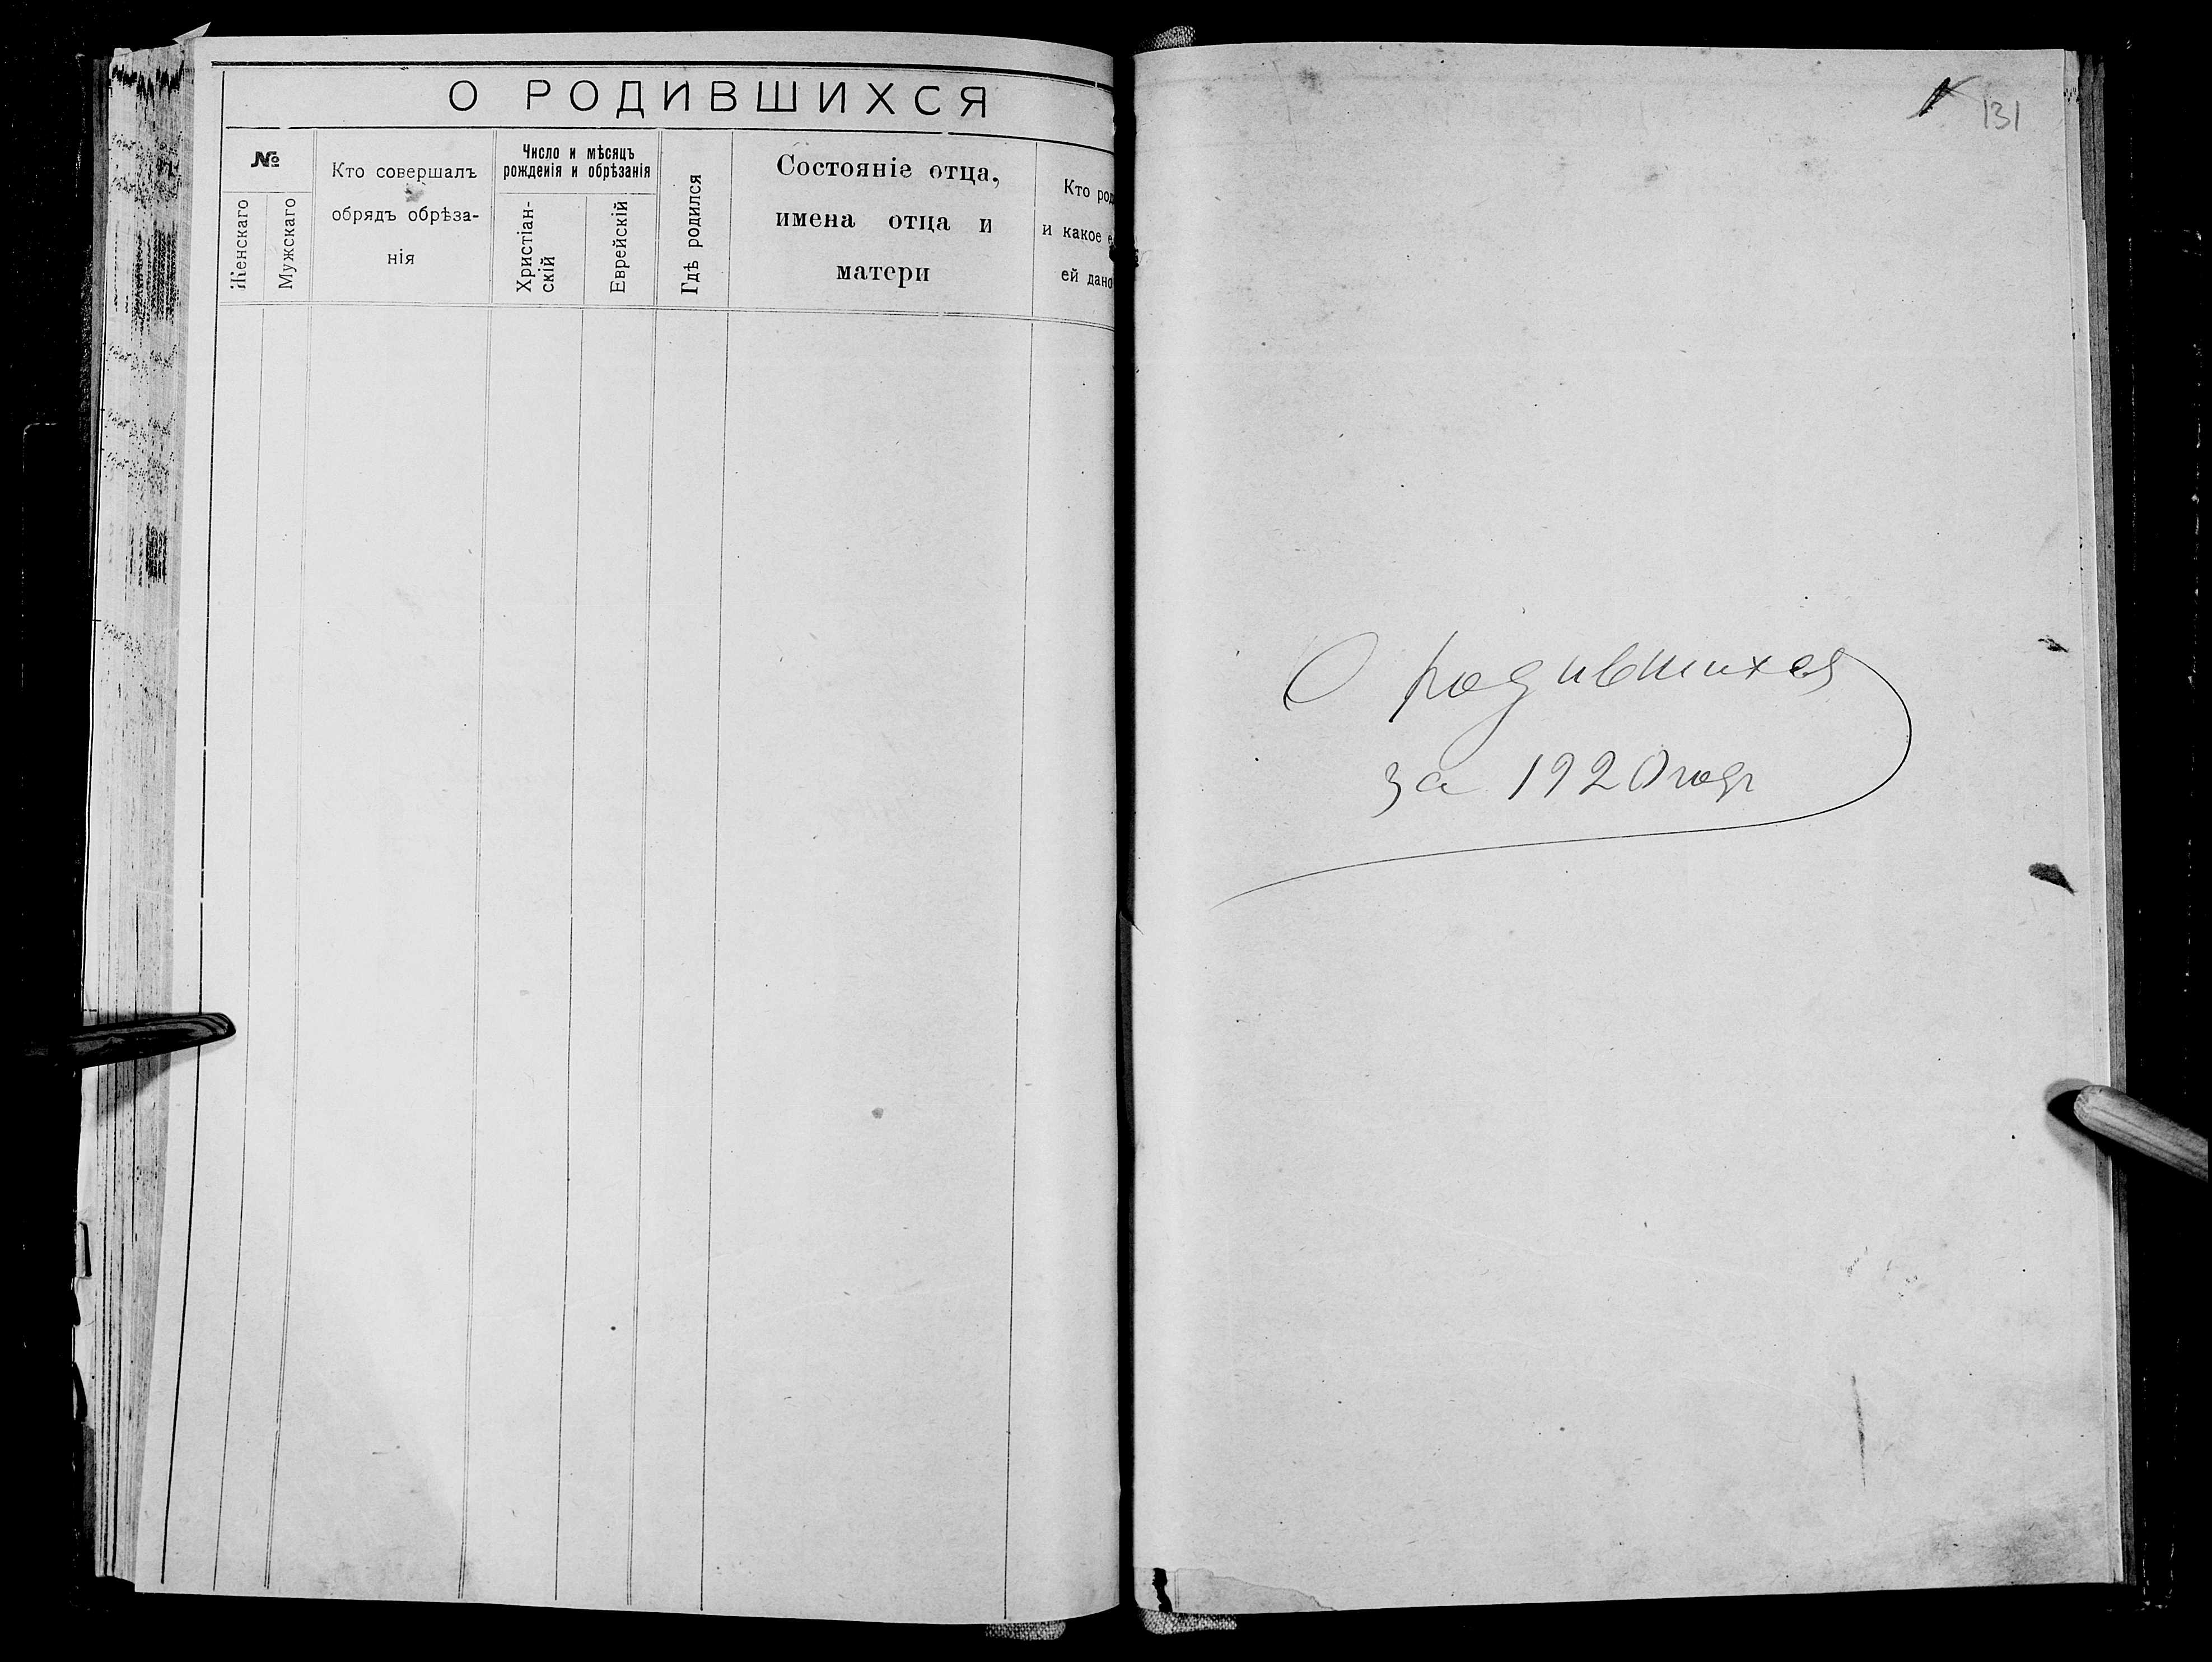 О РОДИВШИХСЯ
№
Женскаго
Мужскаго
Кто совершалъ
обрядъ обрѣза-
нія
Число и мѣсяцъ
рожденія и обрѣзанія
Христіан-
скій
Еврейскій
Гдѣ родился
Состояніе отца,
имена отца и
матери
Кто род
и какое е
ей дано
131
О родившихся
за 1920 годъ